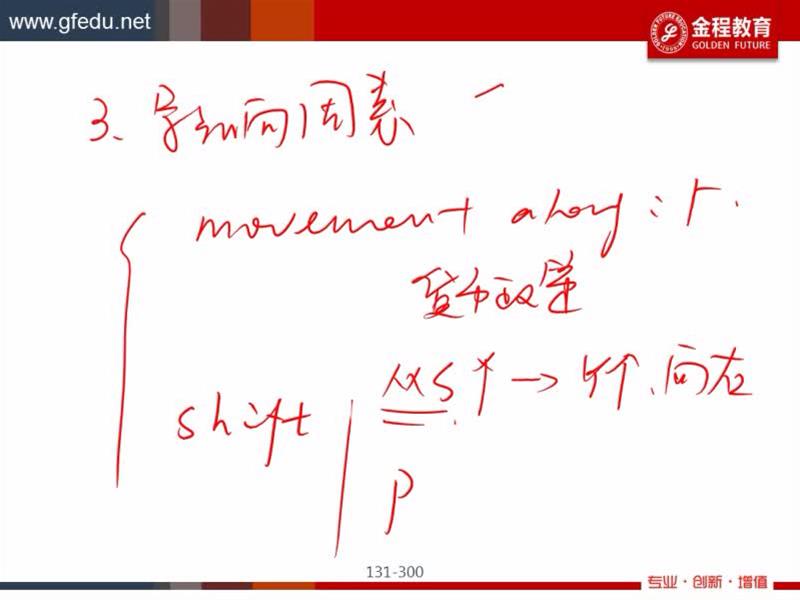 www.gfedu.net
金程教育
GOLDEN FUTURE
3、影响因素
movement along : r.
货币政策
shift
MS↑ → Y↑、向右
P
131-300
专业·创新·增值